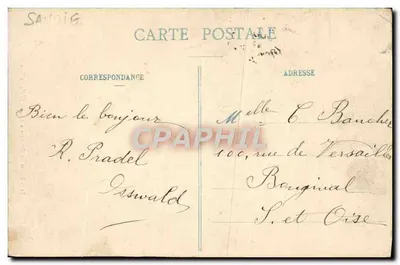 SAVOIE
CARTE POSTALE
CORRESPONDANCE
ADRESSE
Bien le bonjour
R. Pradel
Osswald
Melle C. Bancher
100, rue de Versailles
Bougival
S. et Oise
CPAPHIL